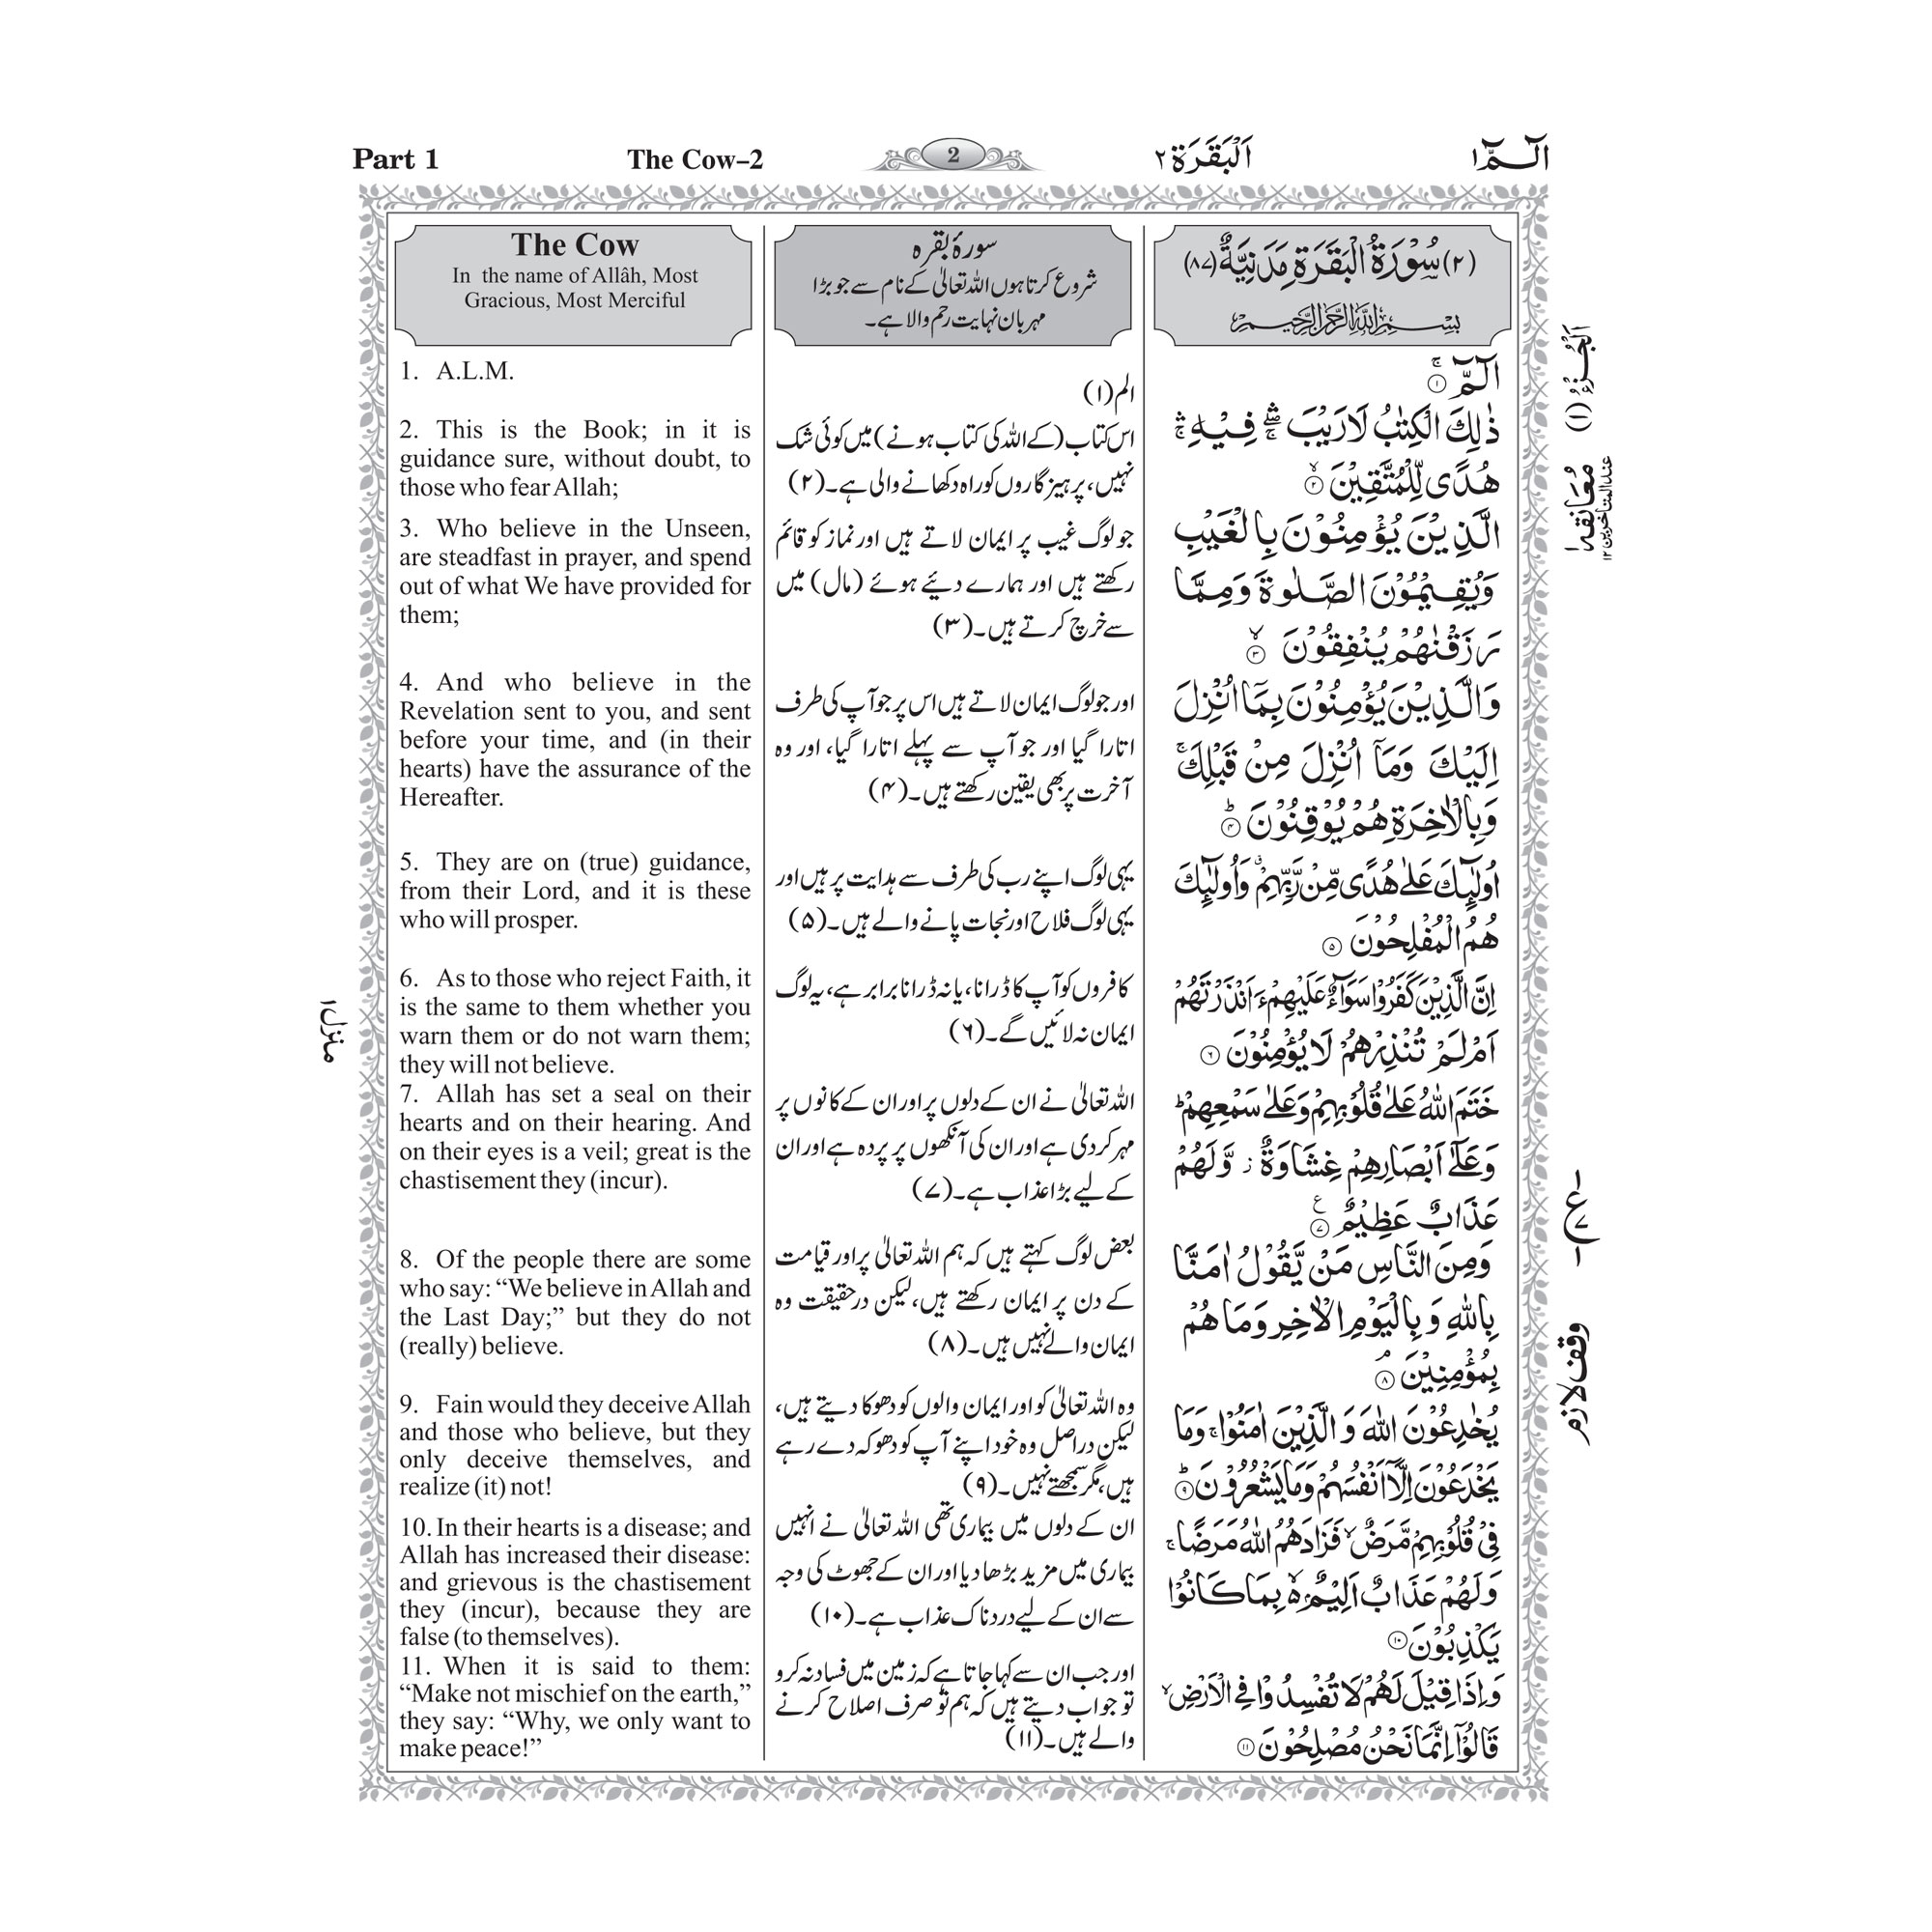 Part 1
The Cow–2
2
اَلْبَقَرَة ٢
الٓـمّٓ ١
The Cow
In the name of Allâh, Most
Gracious, Most Merciful
1. A.L.M.
2. This is the Book; in it is
guidance sure, without doubt, to
those who fear Allah;
3. Who believe in the Unseen,
are steadfast in prayer, and spend
out of what We have provided for
them;
4. And who believe in the
Revelation sent to you, and sent
before your time, and (in their
hearts) have the assurance of the
Hereafter.
5. They are on (true) guidance,
from their Lord, and it is these
who will prosper.
6. As to those who reject Faith, it
is the same to them whether you
warn them or do not warn them;
they will not believe.
7. Allah has set a seal on their
hearts and on their hearing. And
on their eyes is a veil; great is the
chastisement they (incur).
8. Of the people there are some
who say: “We believe in Allah and
the Last Day;” but they do not
(really) believe.
9. Fain would they deceive Allah
and those who believe, but they
only deceive themselves, and
realize (it) not!
10. In their hearts is a disease; and
Allah has increased their disease:
and grievous is the chastisement
they (incur), because they are
false (to themselves).
11. When it is said to them:
“Make not mischief on the earth,”
they say: “Why, we only want to
make peace!”
سورۂ بقرہ
شروع کرتا ہوں اللہ تعالیٰ کے نام سے جو بڑا
مہربان نہایت رحم والا ہے۔
الم (۱)
اس کتاب (کے اللہ کی کتاب ہونے) میں کوئی شک
نہیں، پرہیزگاروں کو راہ دکھانے والی ہے۔ (۲)
جو لوگ غیب پر ایمان لاتے ہیں اور نماز کو قائم
رکھتے ہیں اور ہمارے دیئے ہوئے (مال) میں
سے خرچ کرتے ہیں۔ (۳)
اور جو لوگ ایمان لاتے ہیں اس پر جو آپ کی طرف
اتارا گیا اور جو آپ سے پہلے اتارا گیا، اور وہ
آخرت پر بھی یقین رکھتے ہیں۔ (۴)
یہی لوگ اپنے رب کی طرف سے ہدایت پر ہیں اور
یہی لوگ فلاح اور نجات پانے والے ہیں۔ (۵)
کافروں کو آپ کا ڈرانا، یا نہ ڈرانا برابر ہے، یہ لوگ
ایمان نہ لائیں گے۔ (۶)
اللہ تعالیٰ نے ان کے دلوں پر اور ان کے کانوں پر
مہر کر دی ہے اور ان کی آنکھوں پر پردہ ہے اور ان
کے لیے بڑا عذاب ہے۔ (۷)
بعض لوگ کہتے ہیں کہ ہم اللہ تعالیٰ پر اور قیامت
کے دن پر ایمان رکھتے ہیں، لیکن درحقیقت وہ
ایمان والے نہیں ہیں۔ (۸)
وہ اللہ تعالیٰ کو اور ایمان والوں کو دھوکا دیتے ہیں،
لیکن دراصل وہ خود اپنے آپ کو دھوکہ دے رہے
ہیں، مگر سمجھتے نہیں۔ (۹)
ان کے دلوں میں بیماری تھی اللہ تعالیٰ نے انہیں
بیماری میں مزید بڑھا دیا اور ان کے جھوٹ کی وجہ
سے ان کے لیے دردناک عذاب ہے۔ (۱۰)
اور جب ان سے کہا جاتا ہے کہ زمین میں فساد نہ کرو
تو جواب دیتے ہیں کہ ہم تو صرف اصلاح کرنے
والے ہیں۔ (۱۱)
(٢) سُوْرَةُ الْبَقَرَةِ مَدَنِيَّةٌ (٨٧)
بِسْمِ اللّٰهِ الرَّحْمٰنِ الرَّحِيْمِ
الٓمّٓ ۚ ١
ذٰلِكَ الْكِتٰبُ لَا رَيْبَ ۛ فِيْهِ ۛ
هُدًى لِّلْمُتَّقِيْنَ ۙ ٢
الَّذِيْنَ يُؤْمِنُوْنَ بِالْغَيْبِ
وَيُقِيْمُوْنَ الصَّلٰوةَ وَمِمَّا
رَزَقْنٰهُمْ يُنْفِقُوْنَ ۙ ٣
وَالَّذِيْنَ يُؤْمِنُوْنَ بِمَآ اُنْزِلَ
اِلَيْكَ وَمَآ اُنْزِلَ مِنْ قَبْلِكَ ۚ
وَبِالْاٰخِرَةِ هُمْ يُوْقِنُوْنَ ؕ ٤
اُولٰٓئِكَ عَلٰى هُدًى مِّنْ رَّبِّهِمْ ۙ وَاُولٰٓئِكَ
هُمُ الْمُفْلِحُوْنَ ٥
اِنَّ الَّذِيْنَ كَفَرُوْا سَوَآءٌ عَلَيْهِمْ ءَاَنْذَرْتَهُمْ
اَمْ لَمْ تُنْذِرْهُمْ لَا يُؤْمِنُوْنَ ٦
خَتَمَ اللّٰهُ عَلٰى قُلُوْبِهِمْ وَعَلٰى سَمْعِهِمْ ؕ
وَعَلٰٓى اَبْصَارِهِمْ غِشَاوَةٌ ز وَّلَهُمْ
عَذَابٌ عَظِيْمٌ ع ٧
وَمِنَ النَّاسِ مَنْ يَّقُوْلُ اٰمَنَّا
بِاللّٰهِ وَ بِالْيَوْمِ الْاٰخِرِ وَمَا هُمْ
بِمُؤْمِنِيْنَ ۘ ٨
يُخٰدِعُوْنَ اللّٰهَ وَ الَّذِيْنَ اٰمَنُوْا ۚ وَمَا
يَخْدَعُوْنَ اِلَّآ اَنْفُسَهُمْ وَمَا يَشْعُرُوْنَ ؕ ٩
فِيْ قُلُوْبِهِمْ مَّرَضٌ ۙ فَزَادَهُمُ اللّٰهُ مَرَضًا ۚ
وَلَهُمْ عَذَابٌ اَلِيْمٌ ۙ۬ بِمَا كَانُوْا
يَكْذِبُوْنَ ١٠
وَاِذَا قِيْلَ لَهُمْ لَا تُفْسِدُوْا فِي الْاَرْضِ ۙ
قَالُوْٓا اِنَّمَا نَحْنُ مُصْلِحُوْنَ ١١
اَلْجُزْءُ (١)
مُعَانقه ١
عند المتأخرين ١٢
ع
٧
وقف لازم
منزل ١